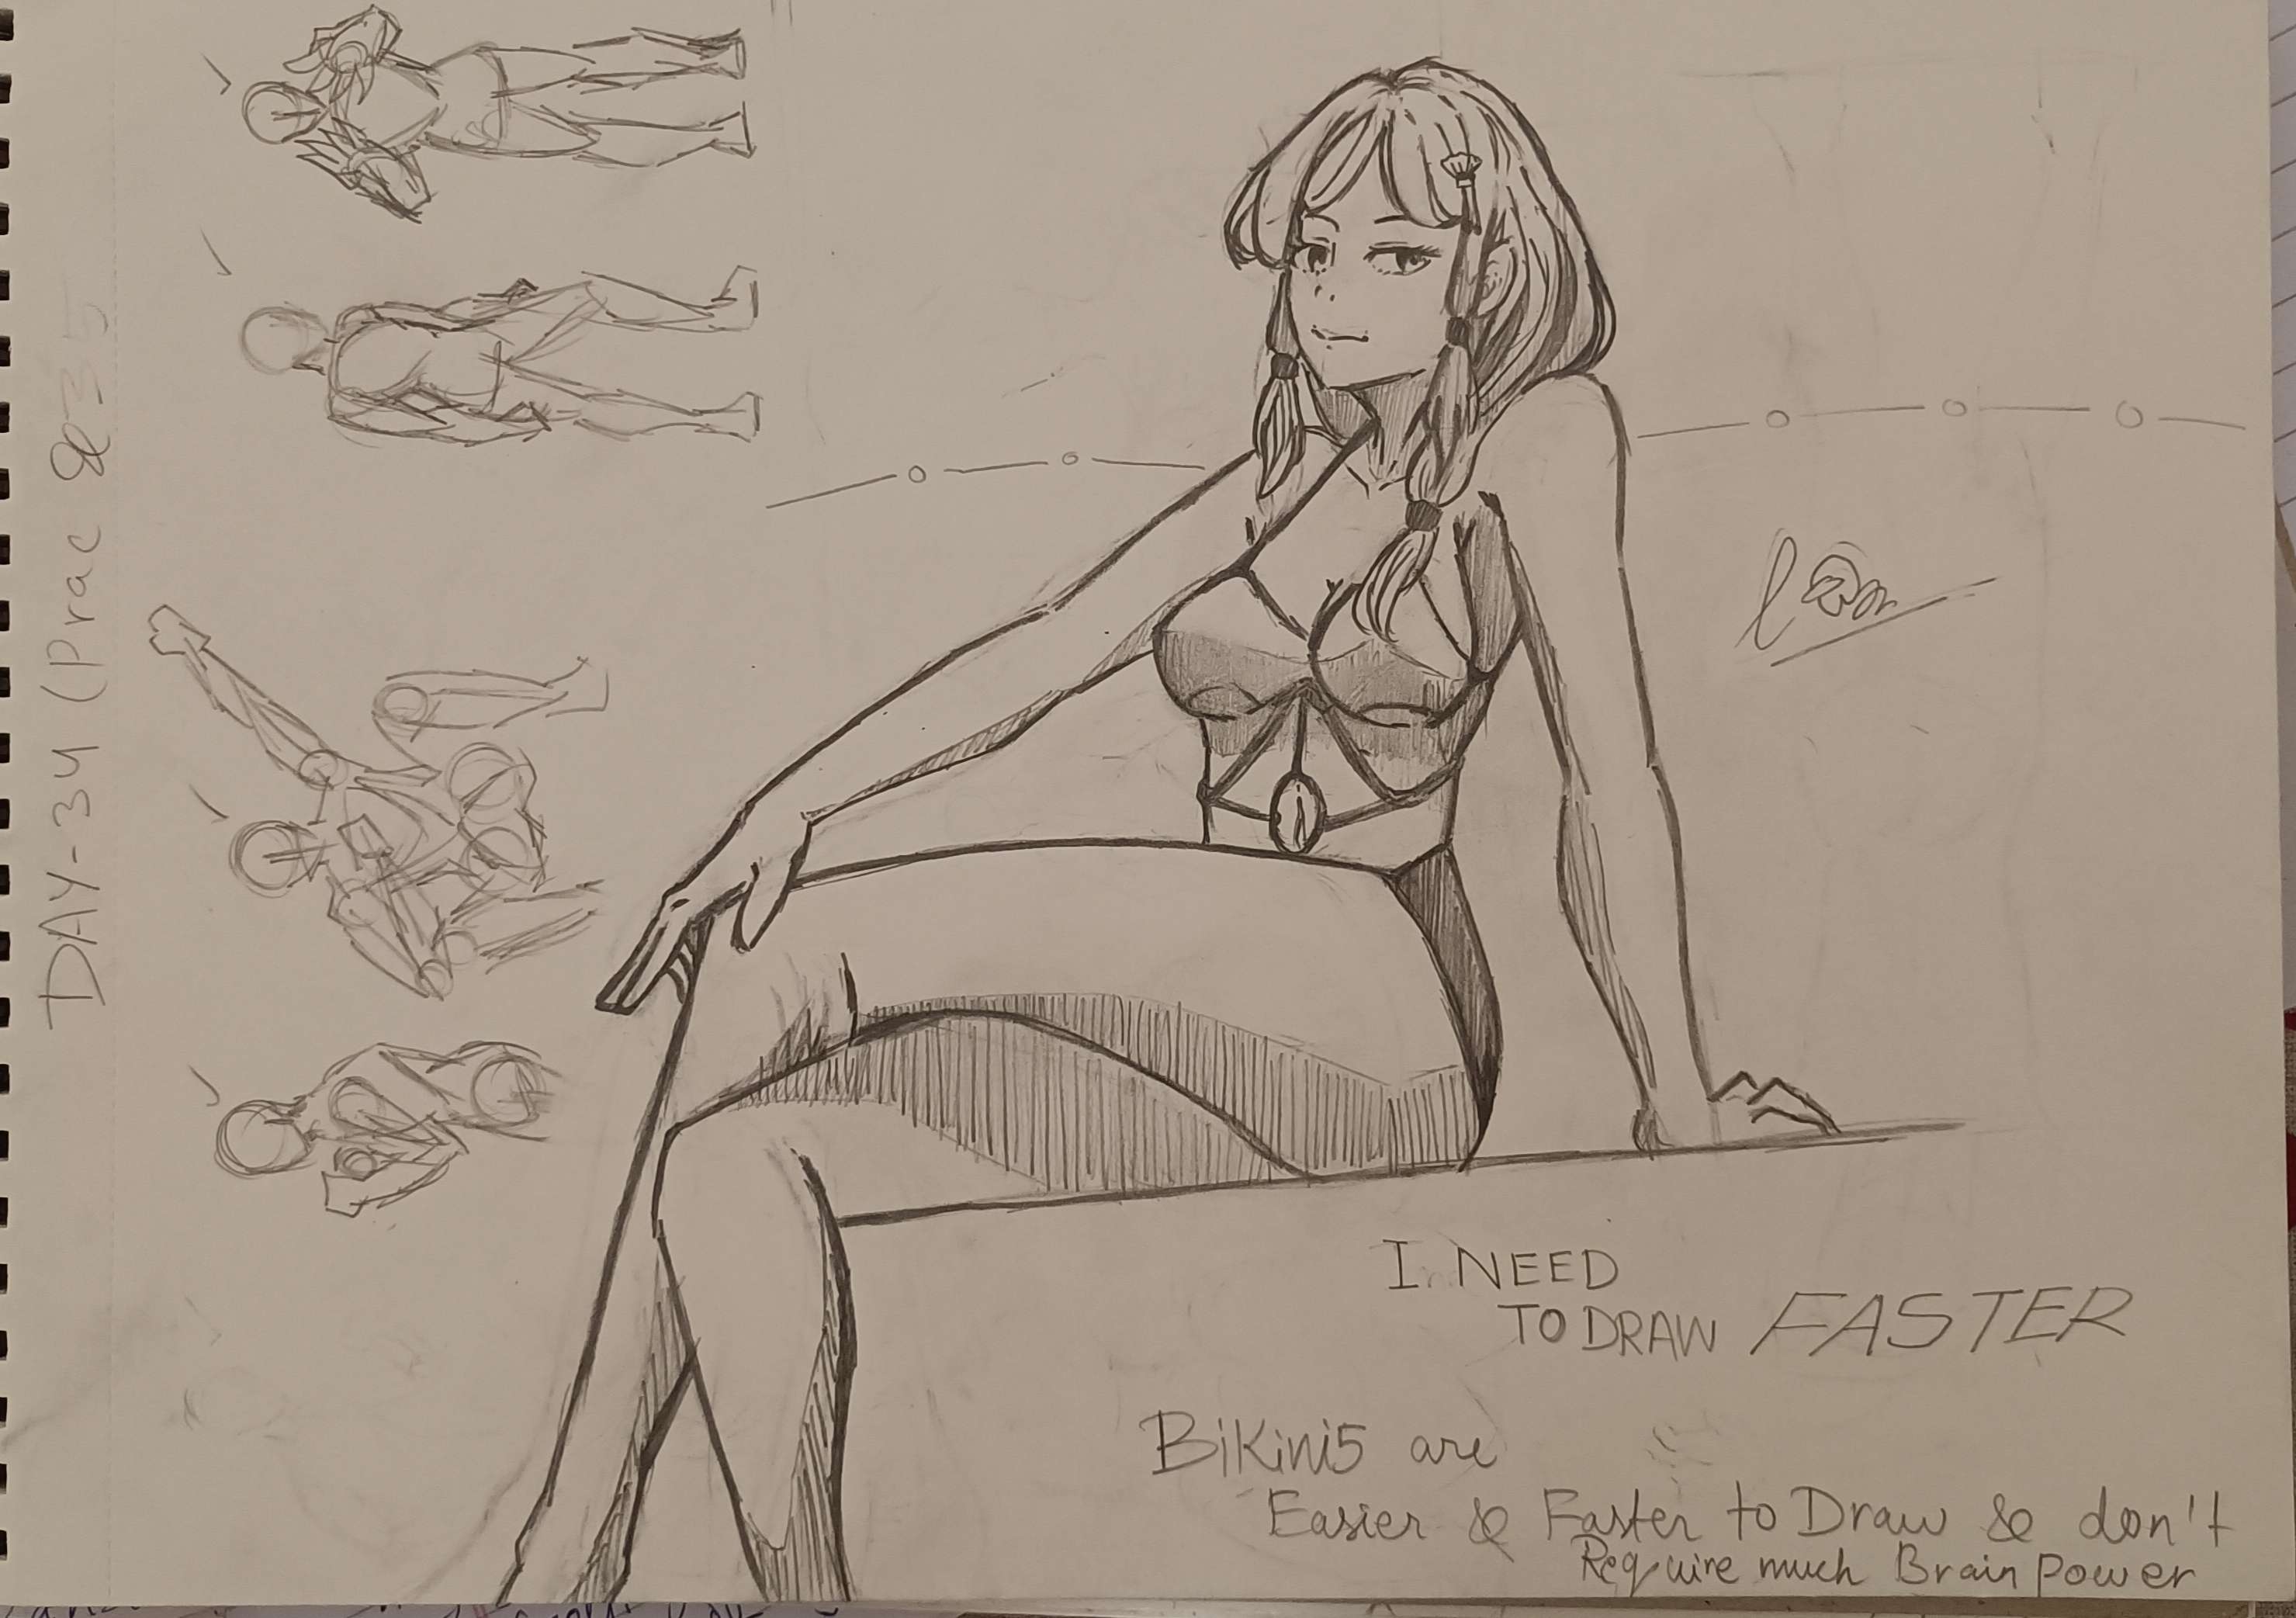 DAY-34 (Prac & 35
I NEED
TO DRAW FASTER
BiKini5 are
Easier & Faster to Draw & don't
Require much Brain power